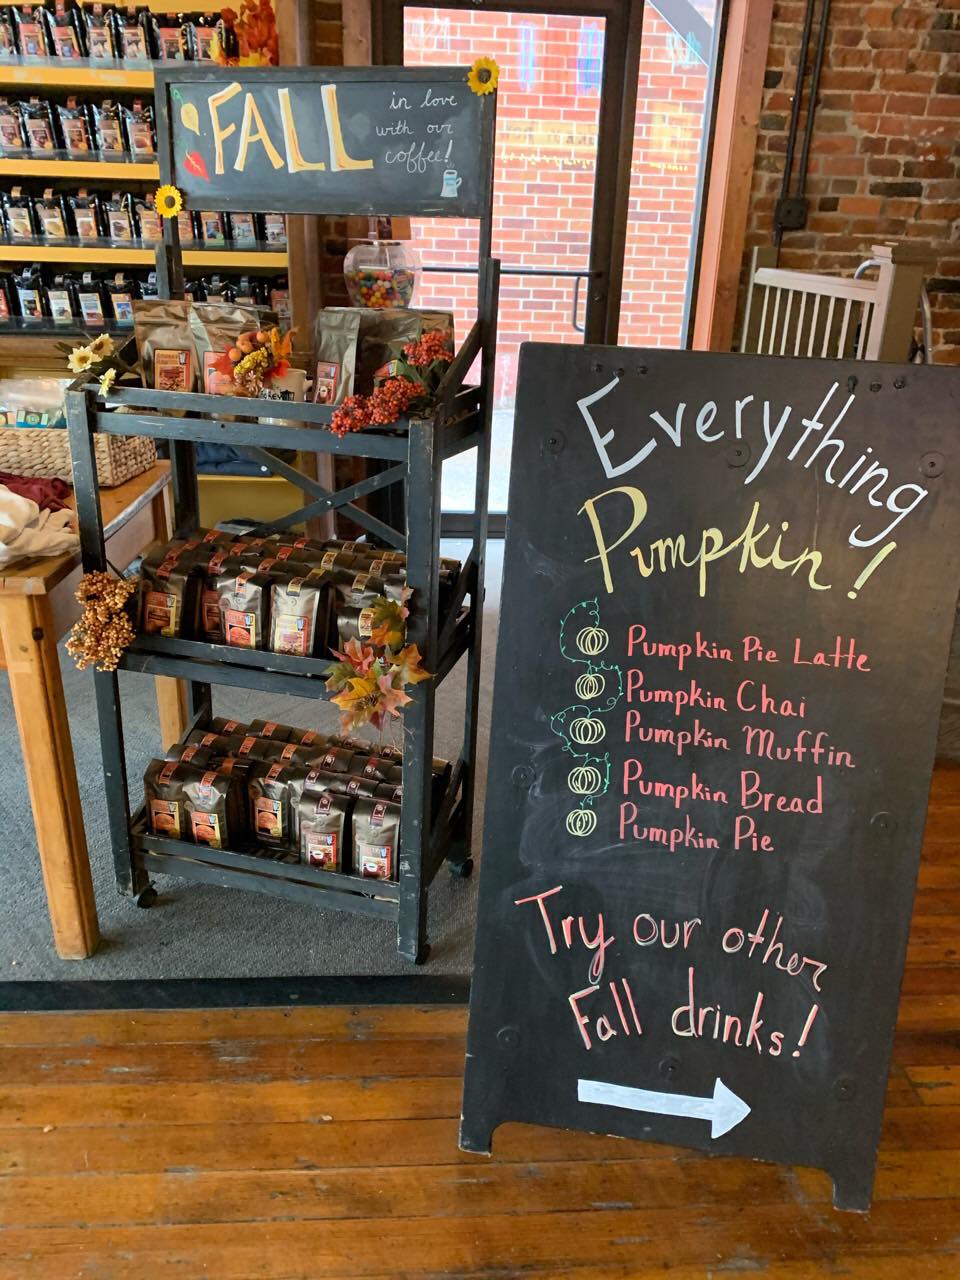 FALL
in love
with our
coffee!
Everything
Pumpkin!
Pumpkin Pie Latte
Pumpkin Chai
Pumpkin Muffin
Pumpkin Bread
Pumpkin Pie
Try our other
Fall drinks!